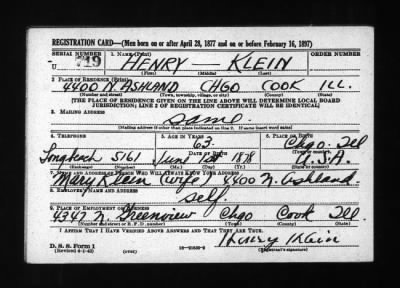 REGISTRATION CARD—(Men born on or after April 28, 1877 and on or before February 16, 1897)
SERIAL NUMBER 1. NAME (Print) ORDER NUMBER
U 719 HENRY — KLEIN
(First) (Middle) (Last)
2. PLACE OF RESIDENCE (Print)
4400 N ASHLAND CHGO COOK ILL.
(Number and street) (Town, township, village, or city) (County) (State)
[THE PLACE OF RESIDENCE GIVEN ON THE LINE ABOVE WILL DETERMINE LOCAL BOARD
JURISDICTION; LINE 2 OF REGISTRATION CERTIFICATE WILL BE IDENTICAL]
3. MAILING ADDRESS
Same.
[Mailing address if other than place indicated on line 2. If same insert word same]
4. TELEPHONE 5. AGE IN YEARS 6. PLACE OF BIRTH
63. Chgo. Ill
DATE OF BIRTH
Longbeach 5161 June 1st 1878 U.S.A.
7. NAME AND ADDRESS OF PERSON WHO WILL ALWAYS KNOW YOUR ADDRESS
Mary K Klein (wife) 4400 N. Ashland
8. EMPLOYER'S NAME AND ADDRESS
Self.
9. PLACE OF EMPLOYMENT OR BUSINESS
4347 N. Greenview Chgo Cook Ill.
(Number and street or R. F. D. number) (Town) (County) (State)
I AFFIRM THAT I HAVE VERIFIED ABOVE ANSWERS AND THAT THEY ARE TRUE.
D. S. S. Form 1 Henry Klein
(Revised 4-1-42) (over) (Registrant's signature)